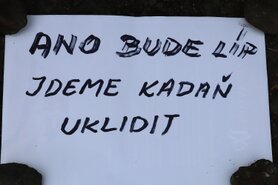 ANO BUDE LÍP
JDEME KADAŇ
UKLIDIT